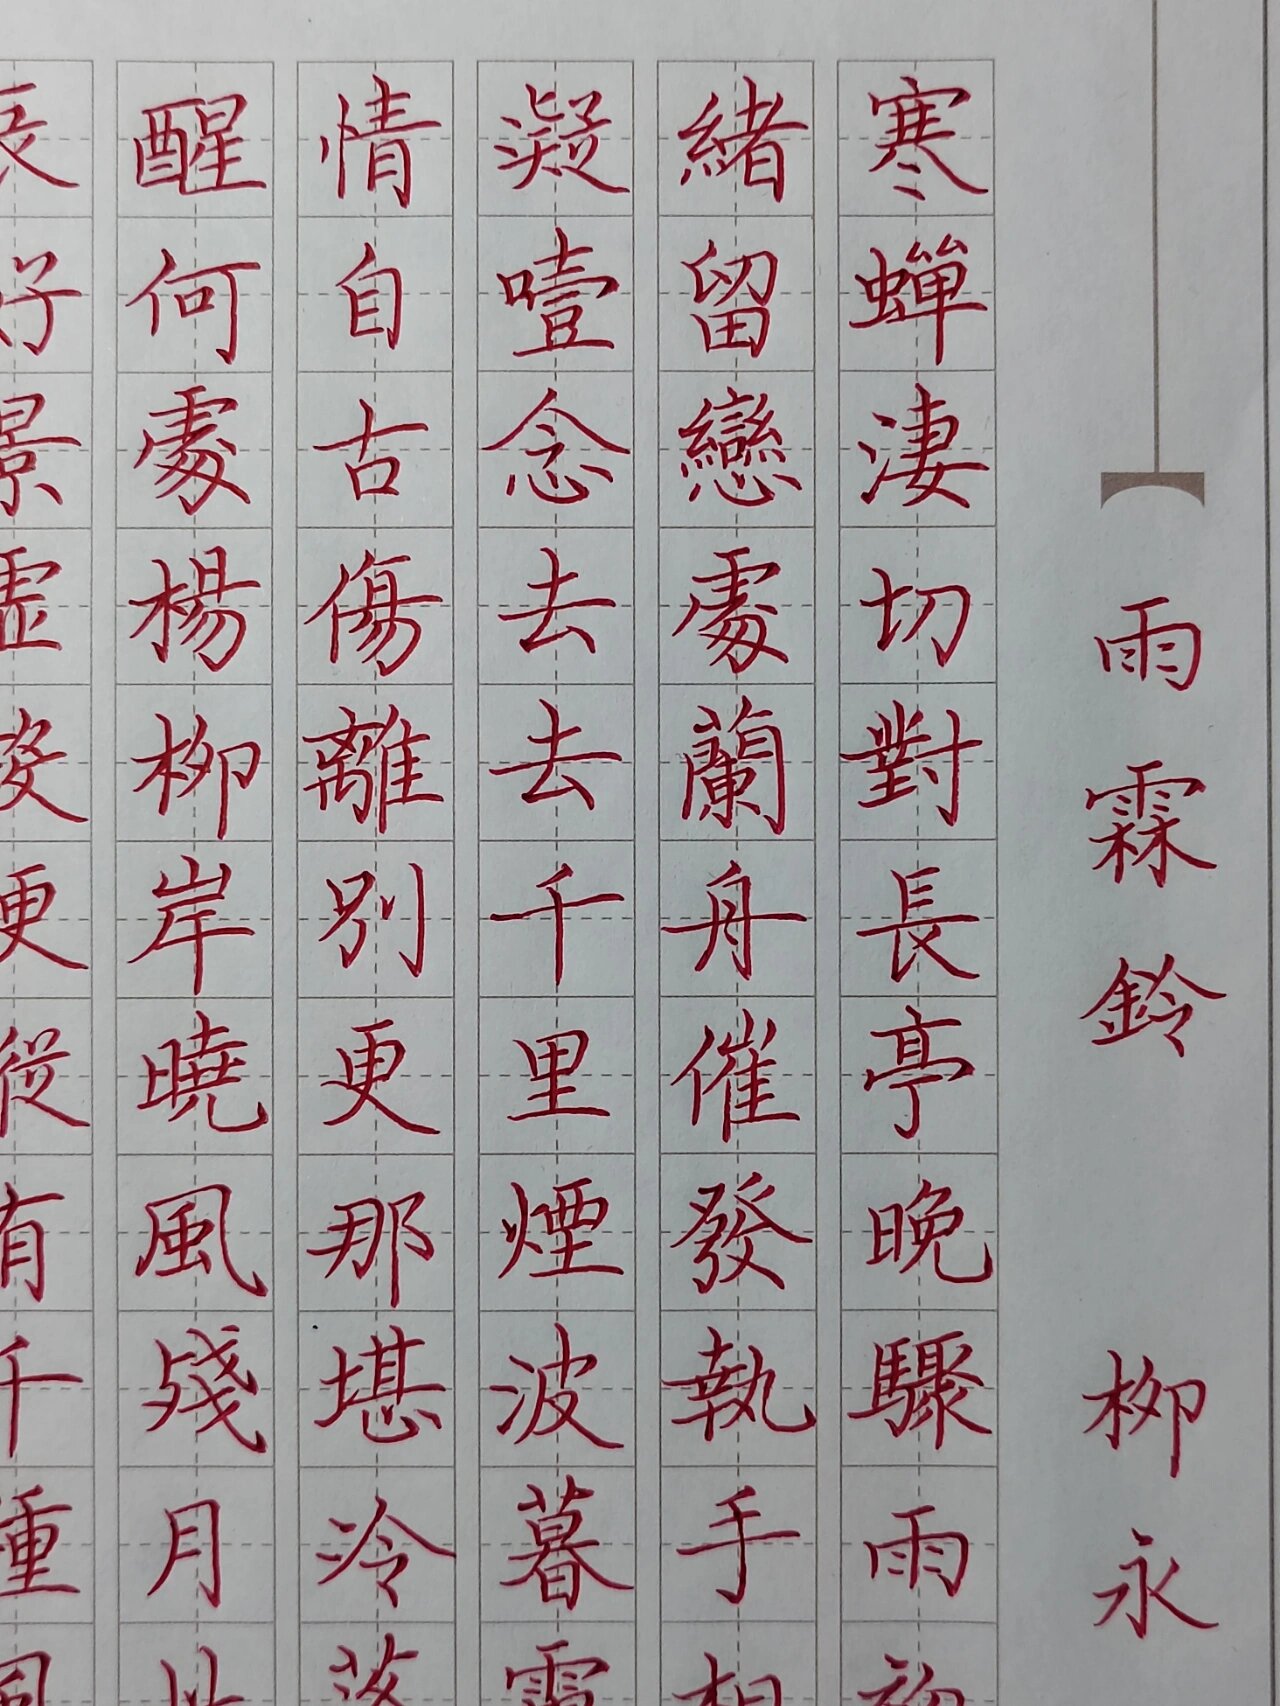 雨霖鈴 柳永
寒蟬淒切對長亭晚驟雨初
緒留戀處蘭舟催發執手相
凝噎念去去千里煙波暮靄
情自古傷離別更那堪冷落
醒何處楊柳岸曉風殘月此
辰好景虛設便縱有千種風